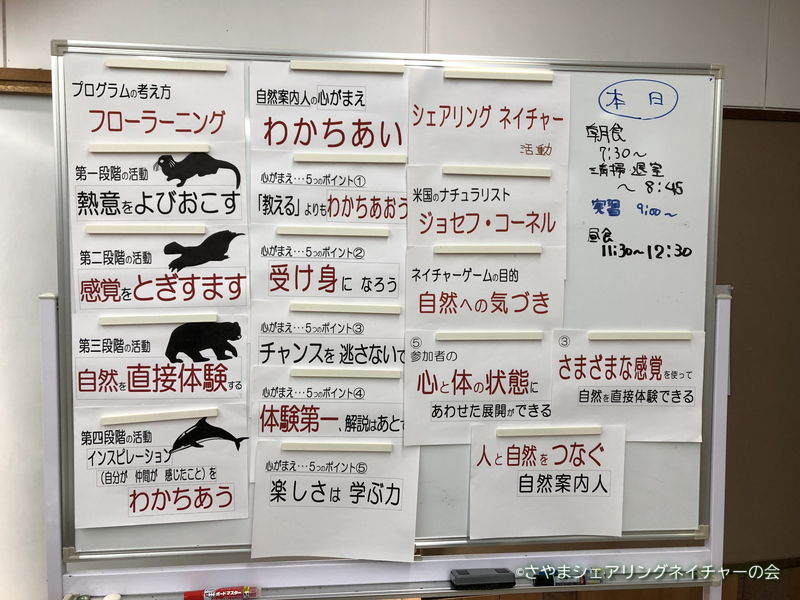 プログラムの考え方
フローラーニング
第一段階の活動
熱意をよびおこす
第二段階の活動
感覚をとぎすます
第三段階の活動
自然を直接体験する
第四段階の活動
インスピレーション
(自分が 仲間が 感じたこと)を
わかちあう
自然案内人の心がまえ
わかちあい
心がまえ…5つのポイント①
「教える」よりもわかちあおう
心がまえ…5つのポイント②
受け身に なろう
心がまえ…5つのポイント③
チャンスを 逃さないで
心がまえ…5つのポイント④
体験第一、解説はあとで
心がまえ…5つのポイント⑤
楽しさは 学ぶ力
シェアリング ネイチャー
活動
米国のナチュラリスト
ジョセフ・コーネル
ネイチャーゲームの目的
自然への気づき
⑤
参加者の
心と体の状態に
あわせた展開ができる
③
さまざまな感覚を使って
自然を直接体験できる
人と自然をつなぐ
自然案内人
本日
朝食
7:30〜
清掃・退室
〜8:45
実習 9:00〜
昼食
11:30〜12:30
ボードマスター
©さやまシェアリングネイチャーの会